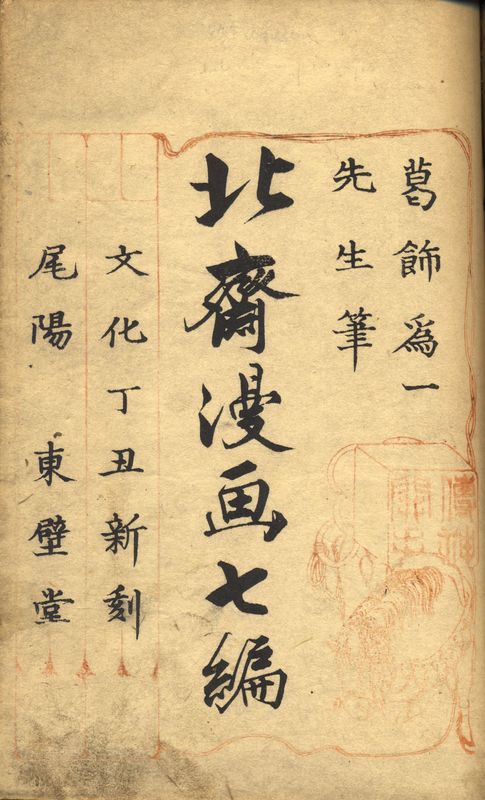 葛飾爲一
先生筆
北齋漫画七編
文化丁丑新刻
尾陽 東壁堂